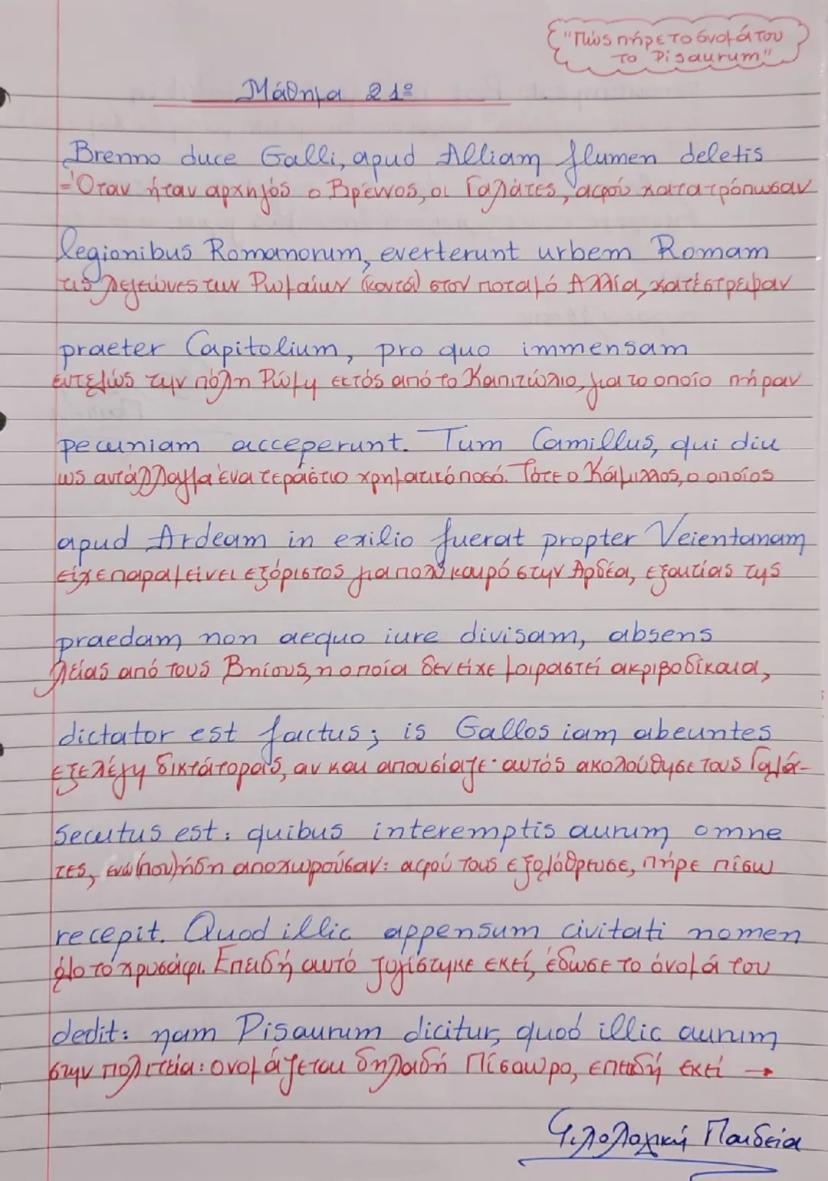 "Πώς πήρε το όνομά του
το Pisaurum"
Μάθημα 21º
Brenno duce Galli, apud Alliam flumen deletis
=Όταν ήταν αρχηγός ο Βρέννος, οι Γαλάτες, αφού κατατρόπωσαν
legionibus Romanorum, everterunt urbem Romam
τις λεγεώνες των Ρωμαίων (κοντά) στον ποταμό Αλλία, κατέστρεψαν
praeter Capitolium, pro quo immensam
εντελώς την πόλη Ρώμη εκτός από το Καπιτώλιο, για το οποίο πήραν
pecuniam acceperunt. Tum Camillus, qui diu
ως αντάλλαγμα ένα τεράστιο χρηματικό ποσό. Τότε ο Κάμιλλος, ο οποίος
apud Ardeam in exilio fuerat propter Veientanam
είχε παραμείνει εξόριστος για πολύ καιρό στην Αρδέα, εξαιτίας της
praedam non aequo iure divisam, absens
λείας από τους Βηίους, η οποία δεν είχε μοιραστεί ακριβοδίκαια,
dictator est factus; is Gallos iam abeuntes
εξελέγη δικτάτορας, αν και απουσίαζε· αυτός ακολούθησε τους Γαλά-
secutus est: quibus interemptis aurum omne
τες, ενώ (που) ήδη αποχωρούσαν: αφού τους εξολόθρευσε, πήρε πίσω
recepit. Quod illic appensum civitati nomen
όλο το χρυσάφι. Επειδή αυτό ζυγίστηκε εκεί, έδωσε το όνομά του
dedit: nam Pisaurum dicitur, quod illic aurum
στην πολιτεία: ονομάζεται δηλαδή Πίσαυρο, επειδή εκεί →
Φιλολογική Παιδεία